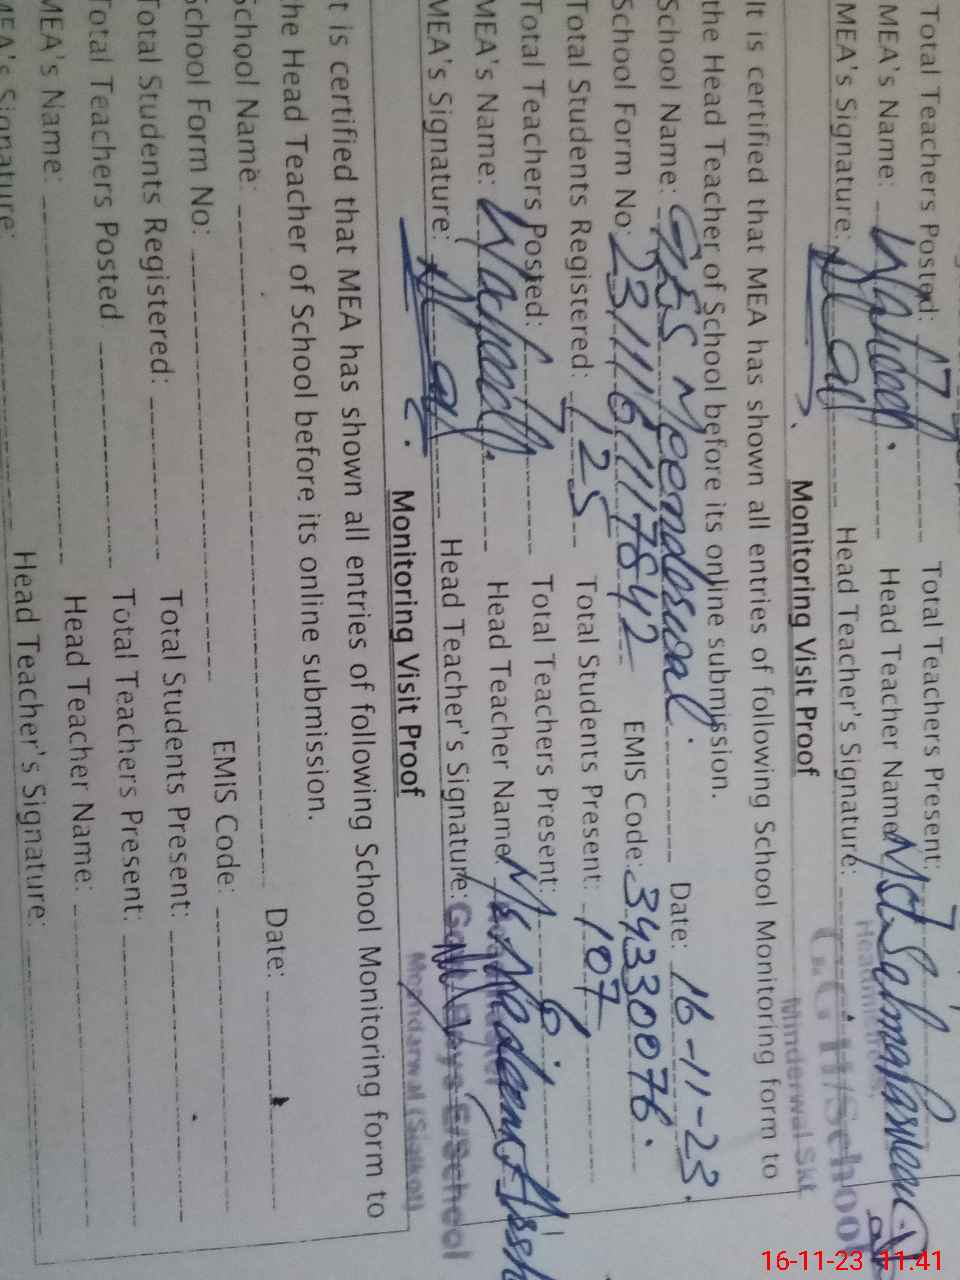 Total Teachers Posted: 17 Total Teachers Present: 7
MEA's Name: Waheed. Head Teacher Name Mst. Salma
MEA's Signature: Head Teacher's Signature:
Minderwal Skt
Monitoring Visit Proof
It is certified that MEA has shown all entries of following School Monitoring form to
the Head Teacher of School before its online submission.
School Name: Date: 16-11-23.
School Form No: EMIS Code: 34330076.
Total Students Registered: 125 Total Students Present: 107
Total Teachers Posted: 7 Total Teachers Present: 6
MEA's Name: Waheed. Head Teacher Name
MEA's Signature: Head Teacher's Signature: Boys E/School
Monitoring Visit Proof
It is certified that MEA has shown all entries of following School Monitoring form to
the Head Teacher of School before its online submission.
School Name: Date:
School Form No: EMIS Code:
Total Students Registered: Total Students Present:
Total Teachers Posted Total Teachers Present:
MEA's Name: Head Teacher Name:
MEA's Signature: Head Teacher's Signature:
16-11-23 11:41